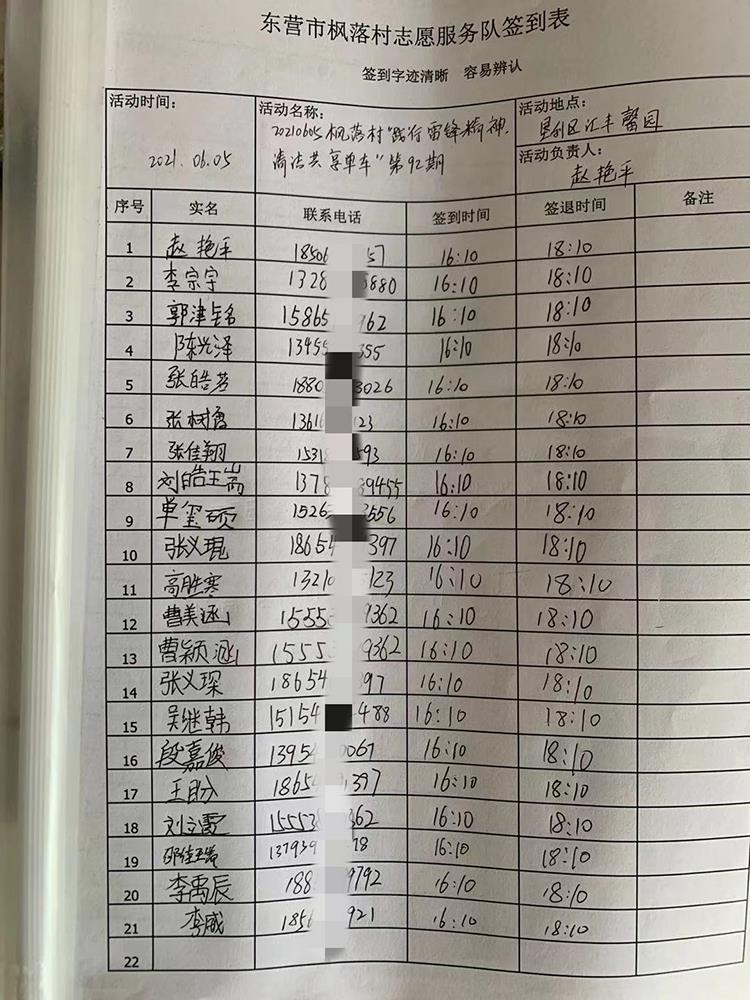 东营市枫落村志愿服务队签到表
签到字迹清晰 容易辨认
活动时间:
2021.06.05
活动名称:
20210605枫落村"践行雷锋精神,
清洁共享单车"第92期
活动地点:
垦利区汇丰馨园
活动负责人:
赵艳平
序号 实名 联系电话 签到时间 签退时间 备注
1 赵艳平 18506 57 16:10 18:10
2 李宗宇 1328 880 16:10 18:10
3 郭津铭 15865 962 16:10 18:10
4 陈光泽 13455 355 16:10 18:10
5 张皓 1880 3026 16:10 18:10
6 张树 1361 123 16:10 18:10
7 张佳翔 1531 593 16:10 18:10
8 刘皓 1378 39455 16:10 18:10
9 单玺硕 1526 3556 16:10 18:10
10 张义琨 18654 397 16:10 18:10
11 高胜寒 13210 123 16:10 18:10
12 曹美涵 1555 9362 16:10 18:10
13 曹颖涵 1555 9362 16:10 18:10
14 张义琛 18654 397 16:10 18:10
15 吴继韩 15154 488 16:10 18:10
16 段嘉俊 13954 0067 16:10 18:10
17 王盼 1865 1397 16:10 18:10
18 刘立霞 15553 362 16:10 18:10
19 邵佳 137939 78 16:10 18:10
20 李禹辰 188 9792 16:10 18:10
21 李威 1856 921 16:10 18:10
22